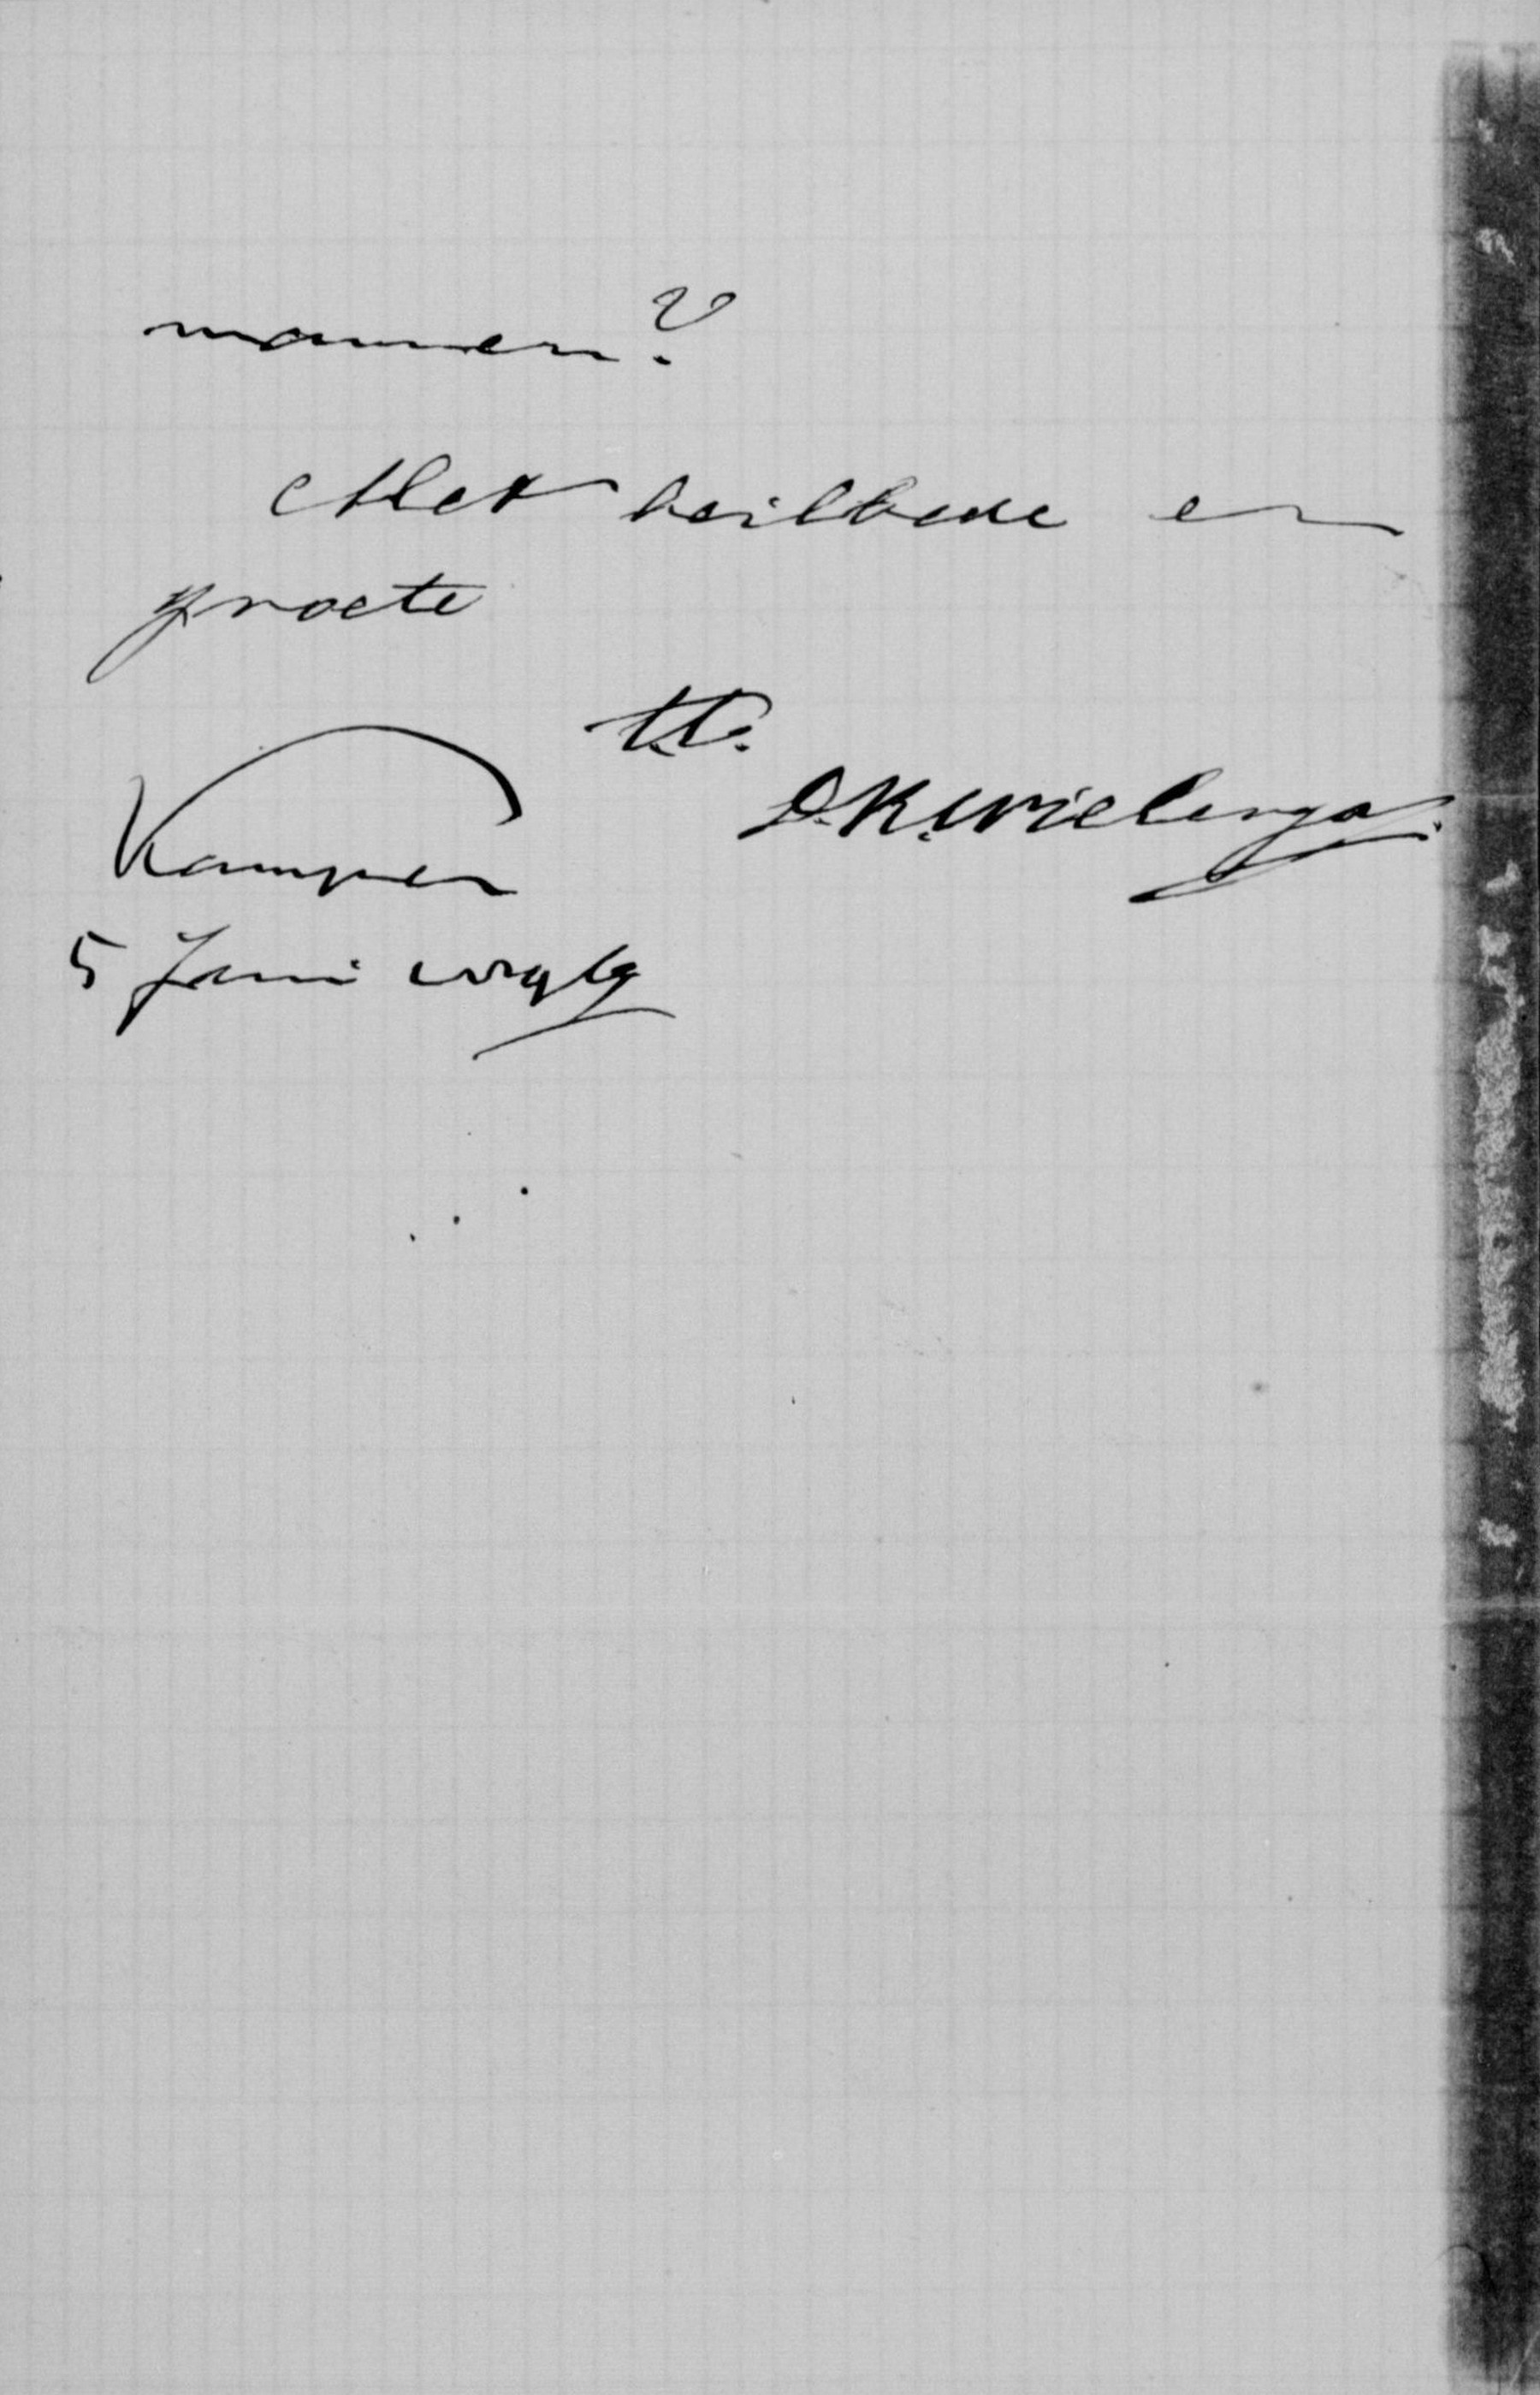 mannen?
Met heilbede en
groete
t.t.
D.K. Wielenga.
Kampen
5 Juni